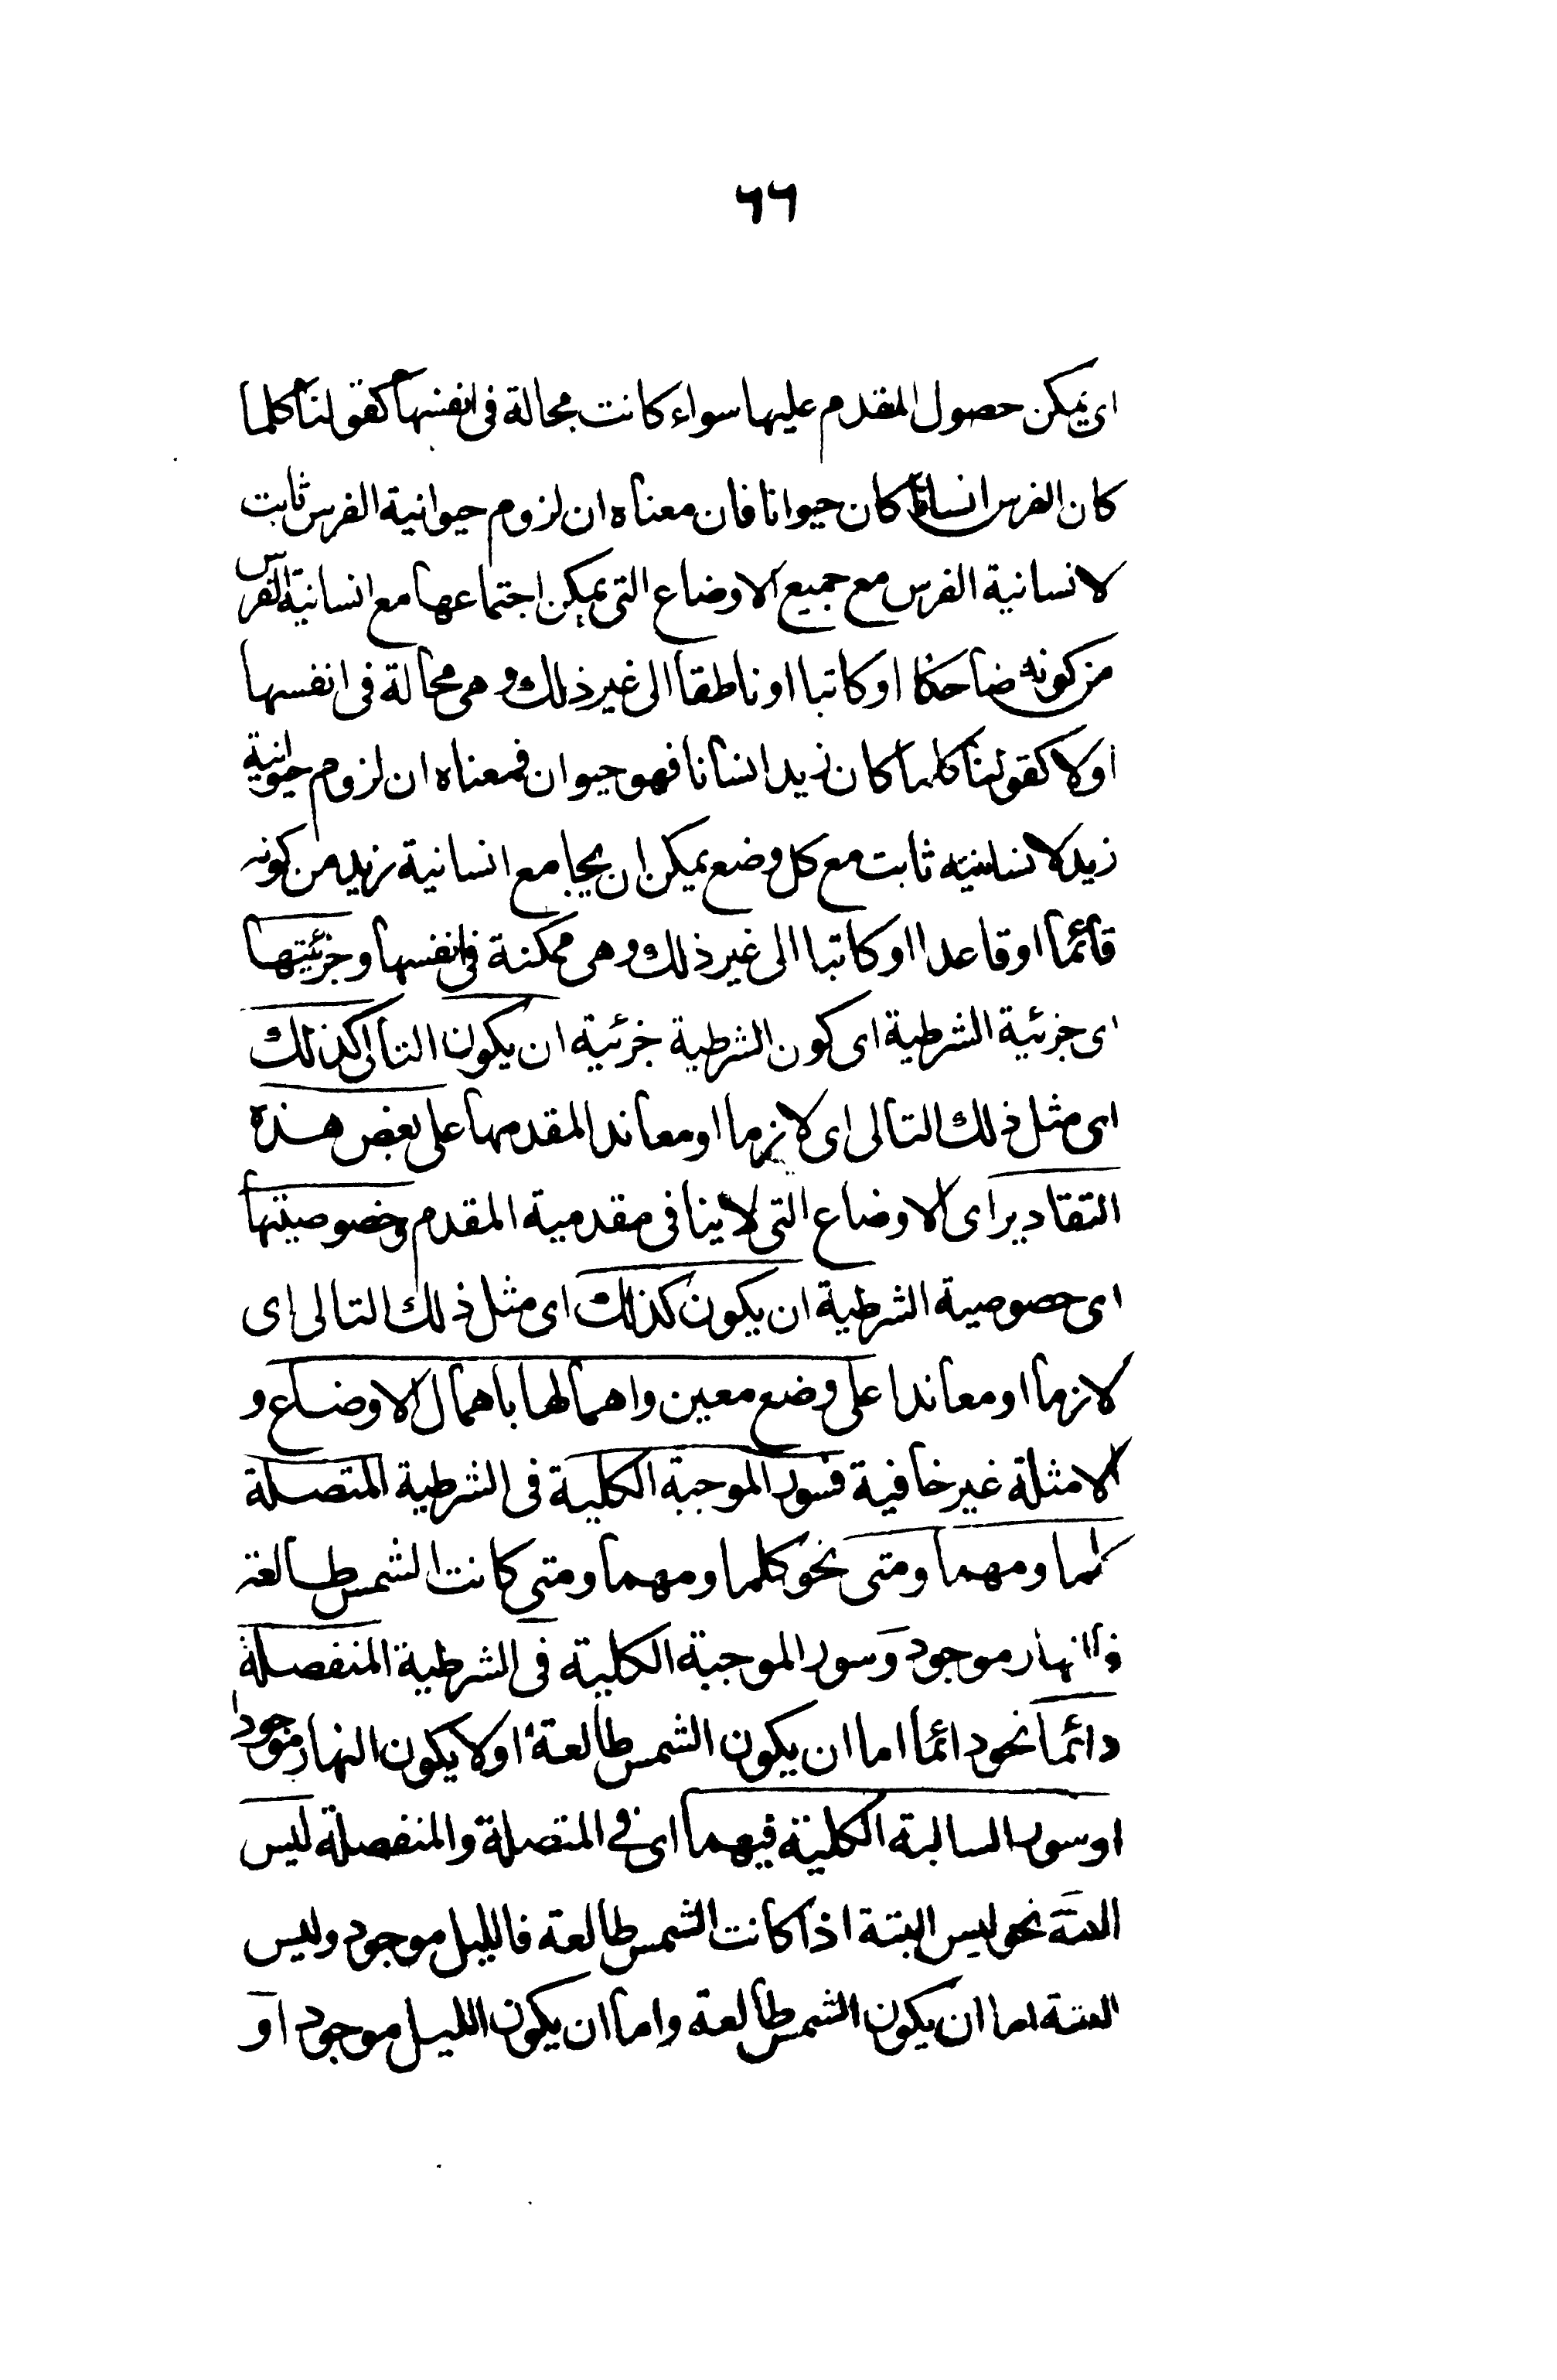 ٦٦
اى يمكن حصول المقدم عليها سواء كانت محالة فى انفسها كقولنا كلما
كان الفرس انسانا كان حيوانا فان معناه ان لزوم حيوانية الفرس ثابت
لانسانية الفرس مع جميع الاوضاع التى يمكن اجتماعها مع انسانية الفرس
من كونه ضاحكا او كاتبا او ناطقا الى غير ذلك وهى محالة فى انفسها
اولا كقولنا كلما كان زيد انسانا فهو حيوان فمعناه ان لزوم حيوانية
زيد لانسانيته ثابت مع كل وضع يمكن ان يجامع انسانية زيد من كونه
قائما او قاعدا او كاتبا الى غير ذلك وهى ممكنة فى انفسها وجزئيتها
اى جزئية الشرطية اى كون الشرطية جزئية ان يكون التالى كذلك
اى مثل ذلك التالى اى لازما او معاندا لمقدمها على بعض هذه
التقادير اى الاوضاع التى لاينافى مقدمية المقدم وخصوصيتها
اى خصوصية الشرطية ان يكون كذلك اى مثل ذلك التالى اى
لازما او معاندا على وضع معين واهمالها باهمال الاوضاع و
الامثلة غير خافية فسور الموجبة الكلية فى الشرطية المتصلة
كلما ومهما ومتى نحو كلما ومهما ومتى كانت الشمس طالعة
فالنهار موجود وسور الموجبة الكلية فى الشرطية المنفصلة
دائما نحو دائما اما ان يكون الشمس طالعة اولا يكون النهار موجودا
او سور السالبة الكلية فيهما اى فى المتصلة والمنفصلة ليس
البتة نحو ليس البتة اذا كانت الشمس طالعة فالليل موجود وليس
البتة اما ان يكون الشمس طالعة واما ان يكون الليل موجود او